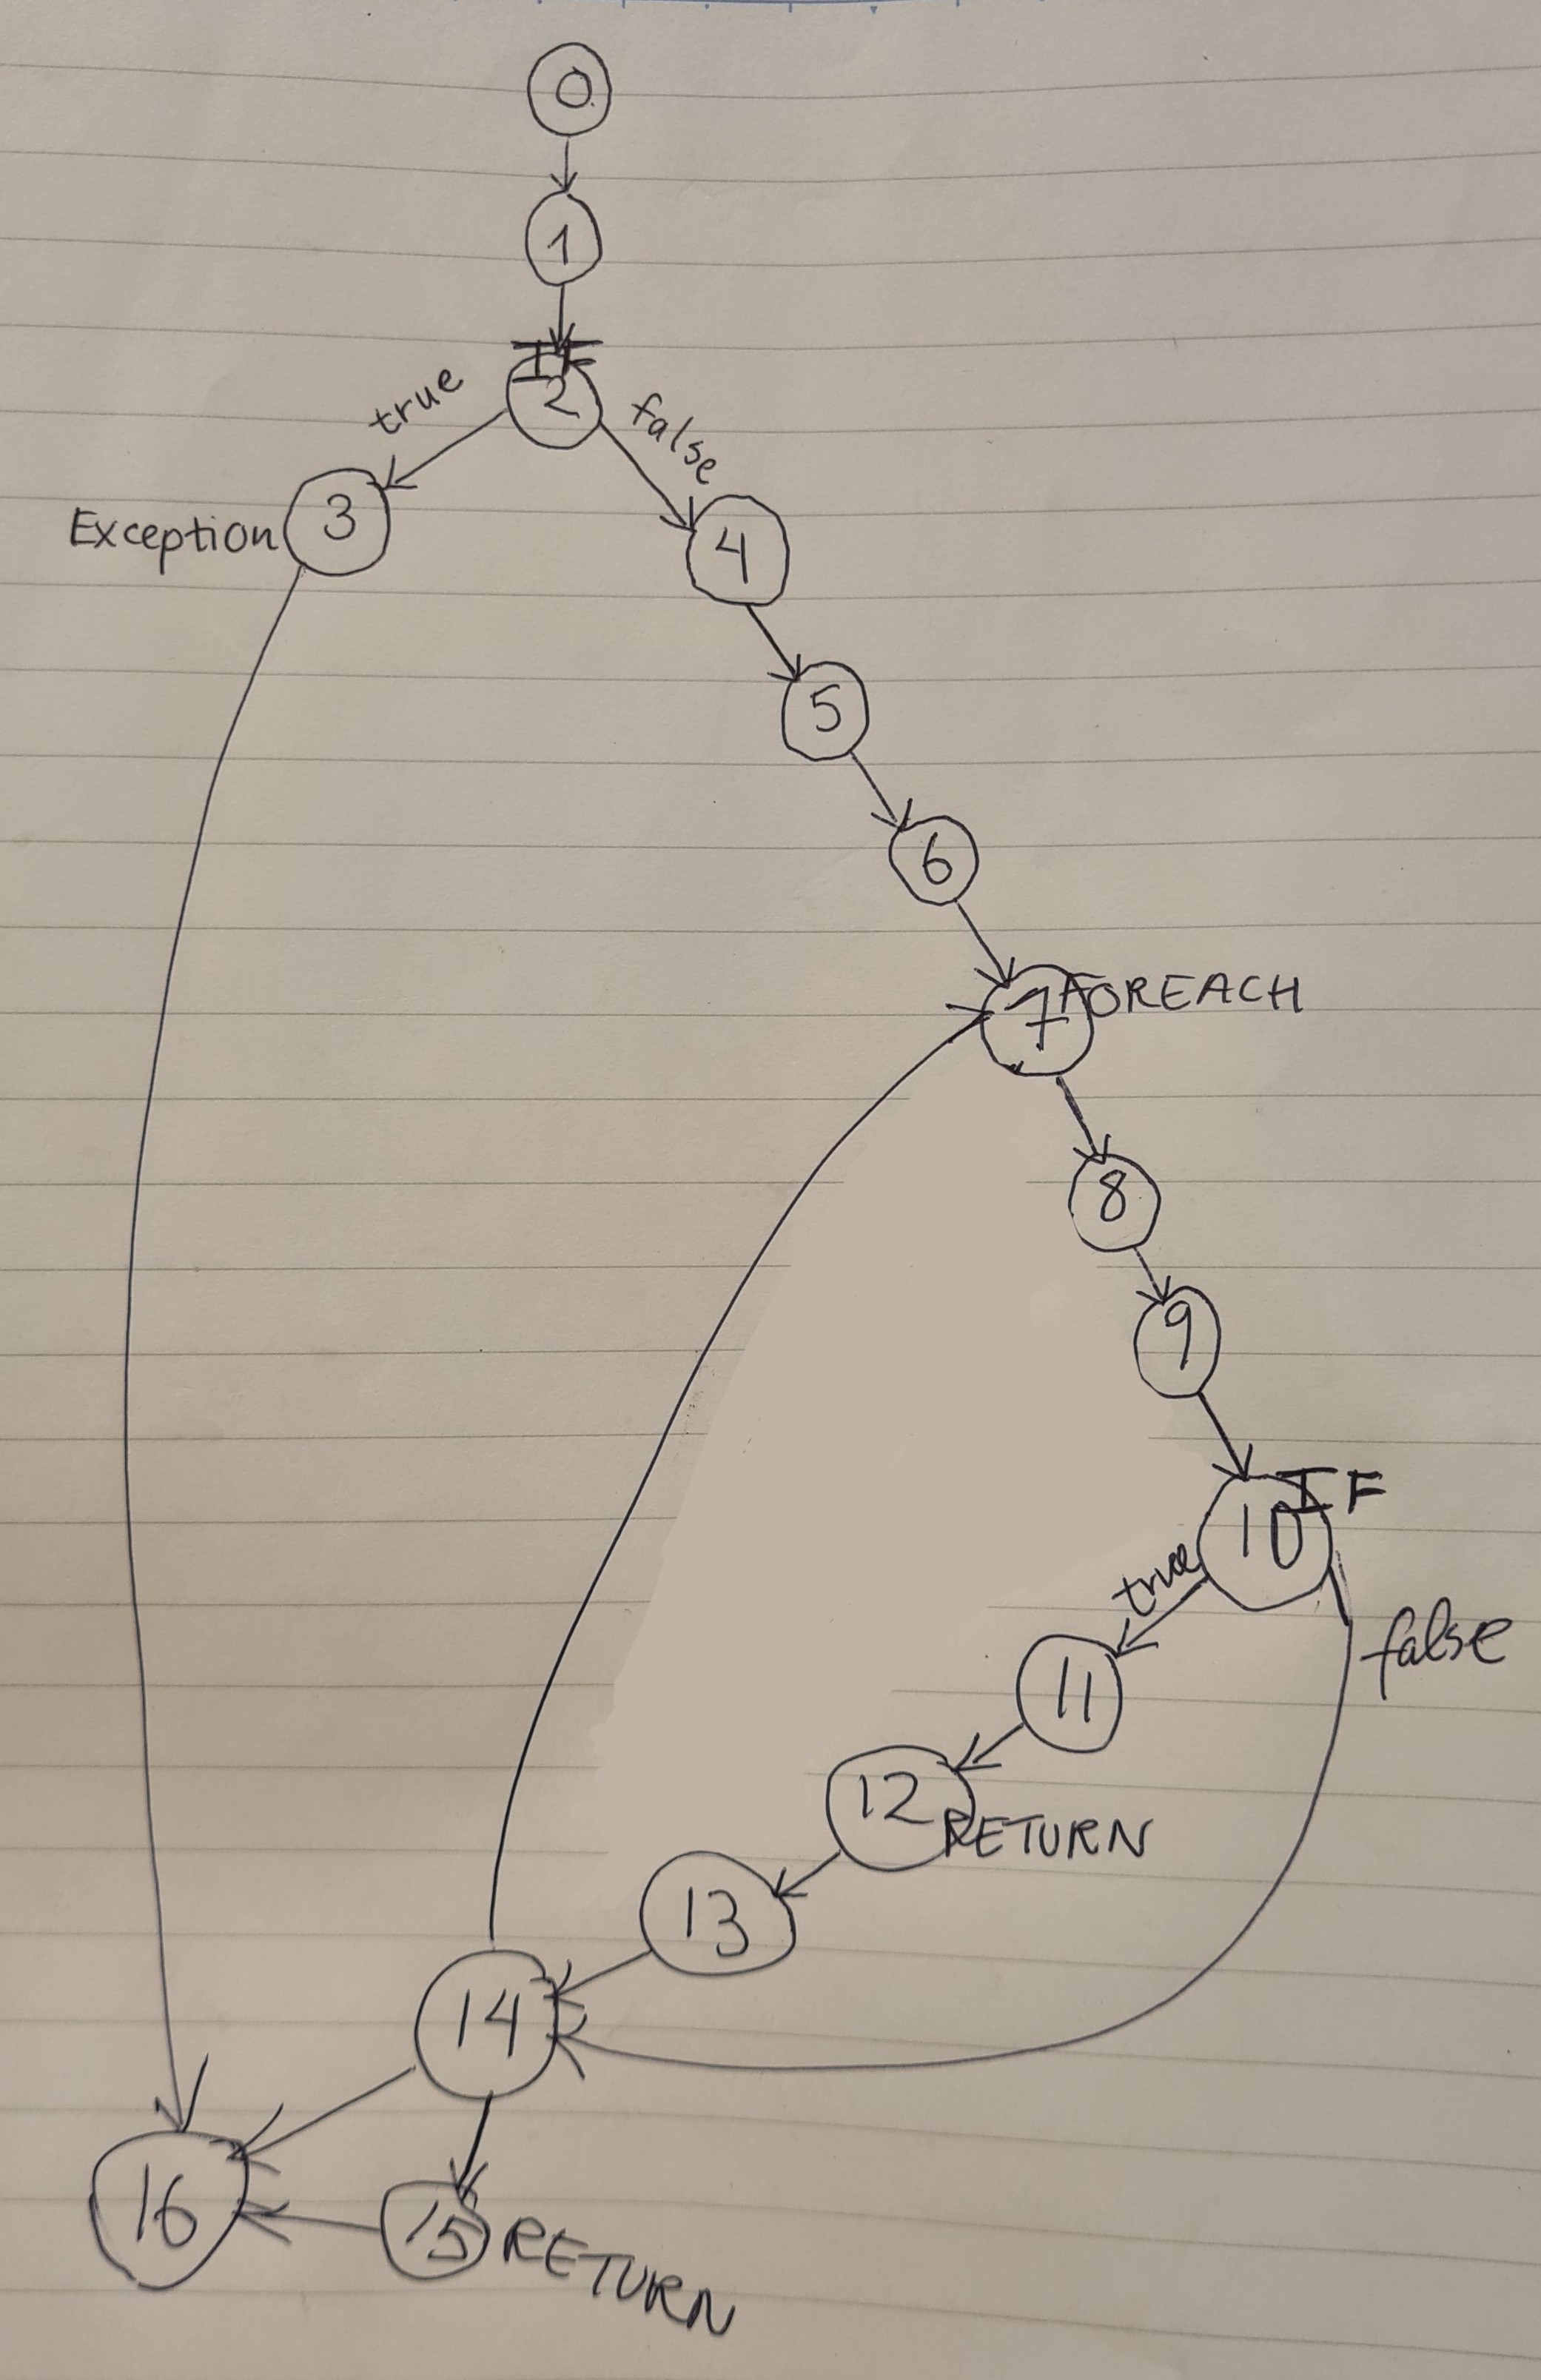 0
1
IF
2
true
false
3
Exception
4
5
6
7 FOREACH
8
9
10 IF
true
false
11
12 RETURN
13
14
16
15 RETURN